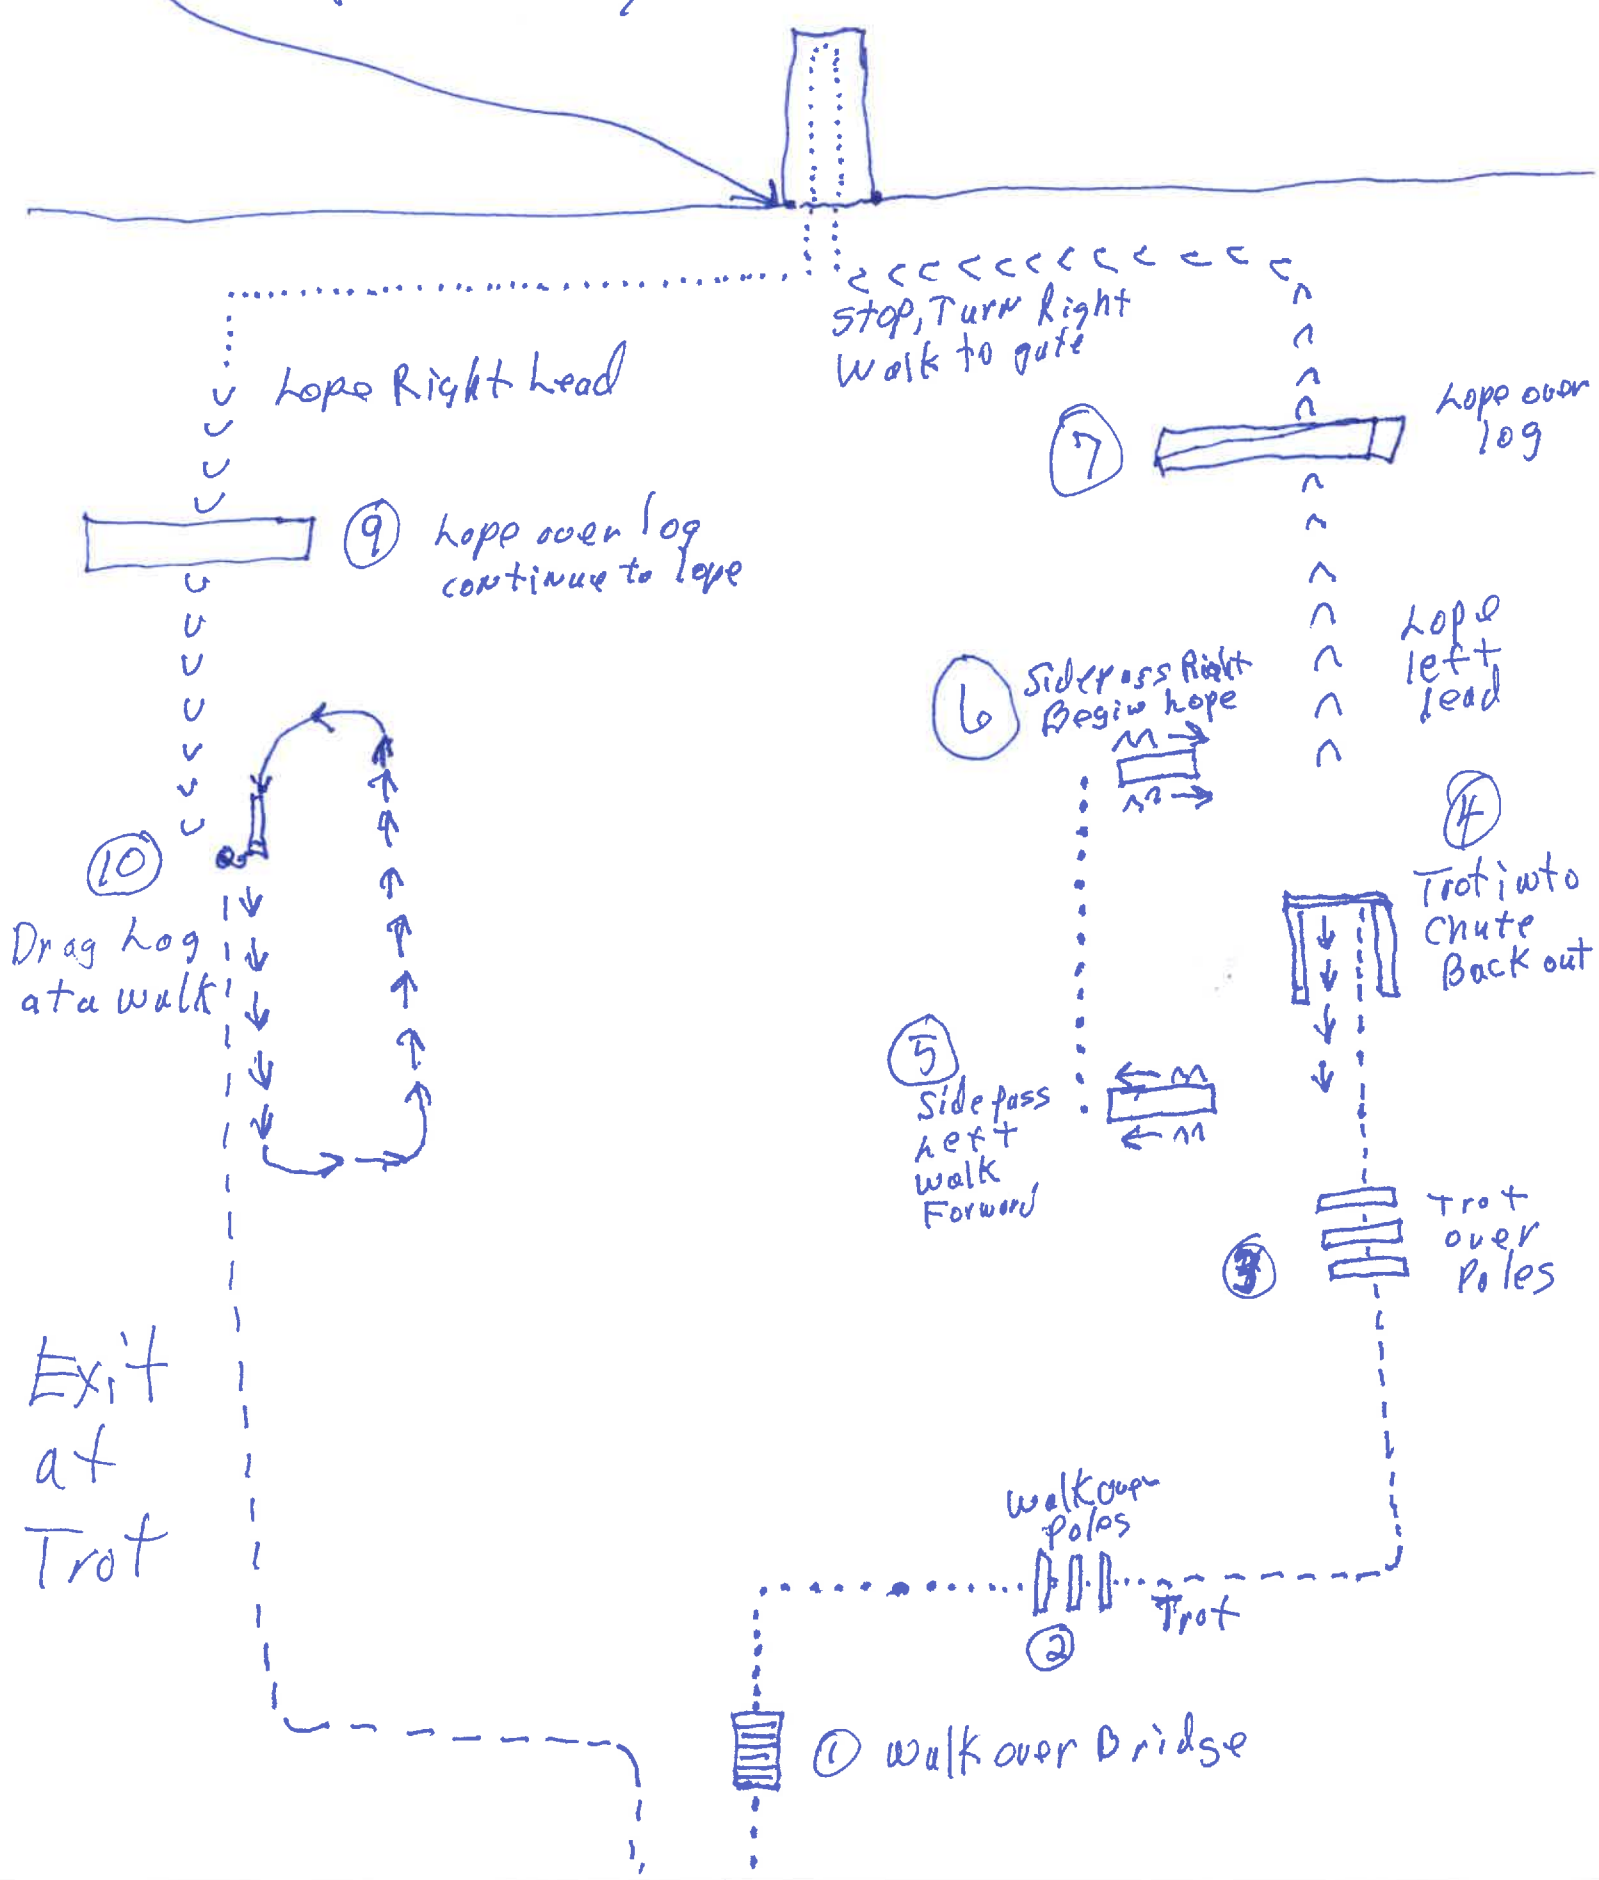 Stop, Turn Right
Walk to gate
Lope Right Lead
7
Lope over
log
9
Lope over log
continue to lope
Lope
left
lead
6
Sidepass Right
Begin Lope
4
Trot into
Chute
Back out
10
Drag Log
at a walk
5
Side pass
Left
Walk
Forward
3
Trot
over
Poles
Exit
at
Trot
Walk over
Poles
2
Trot
1 Walk over Bridge